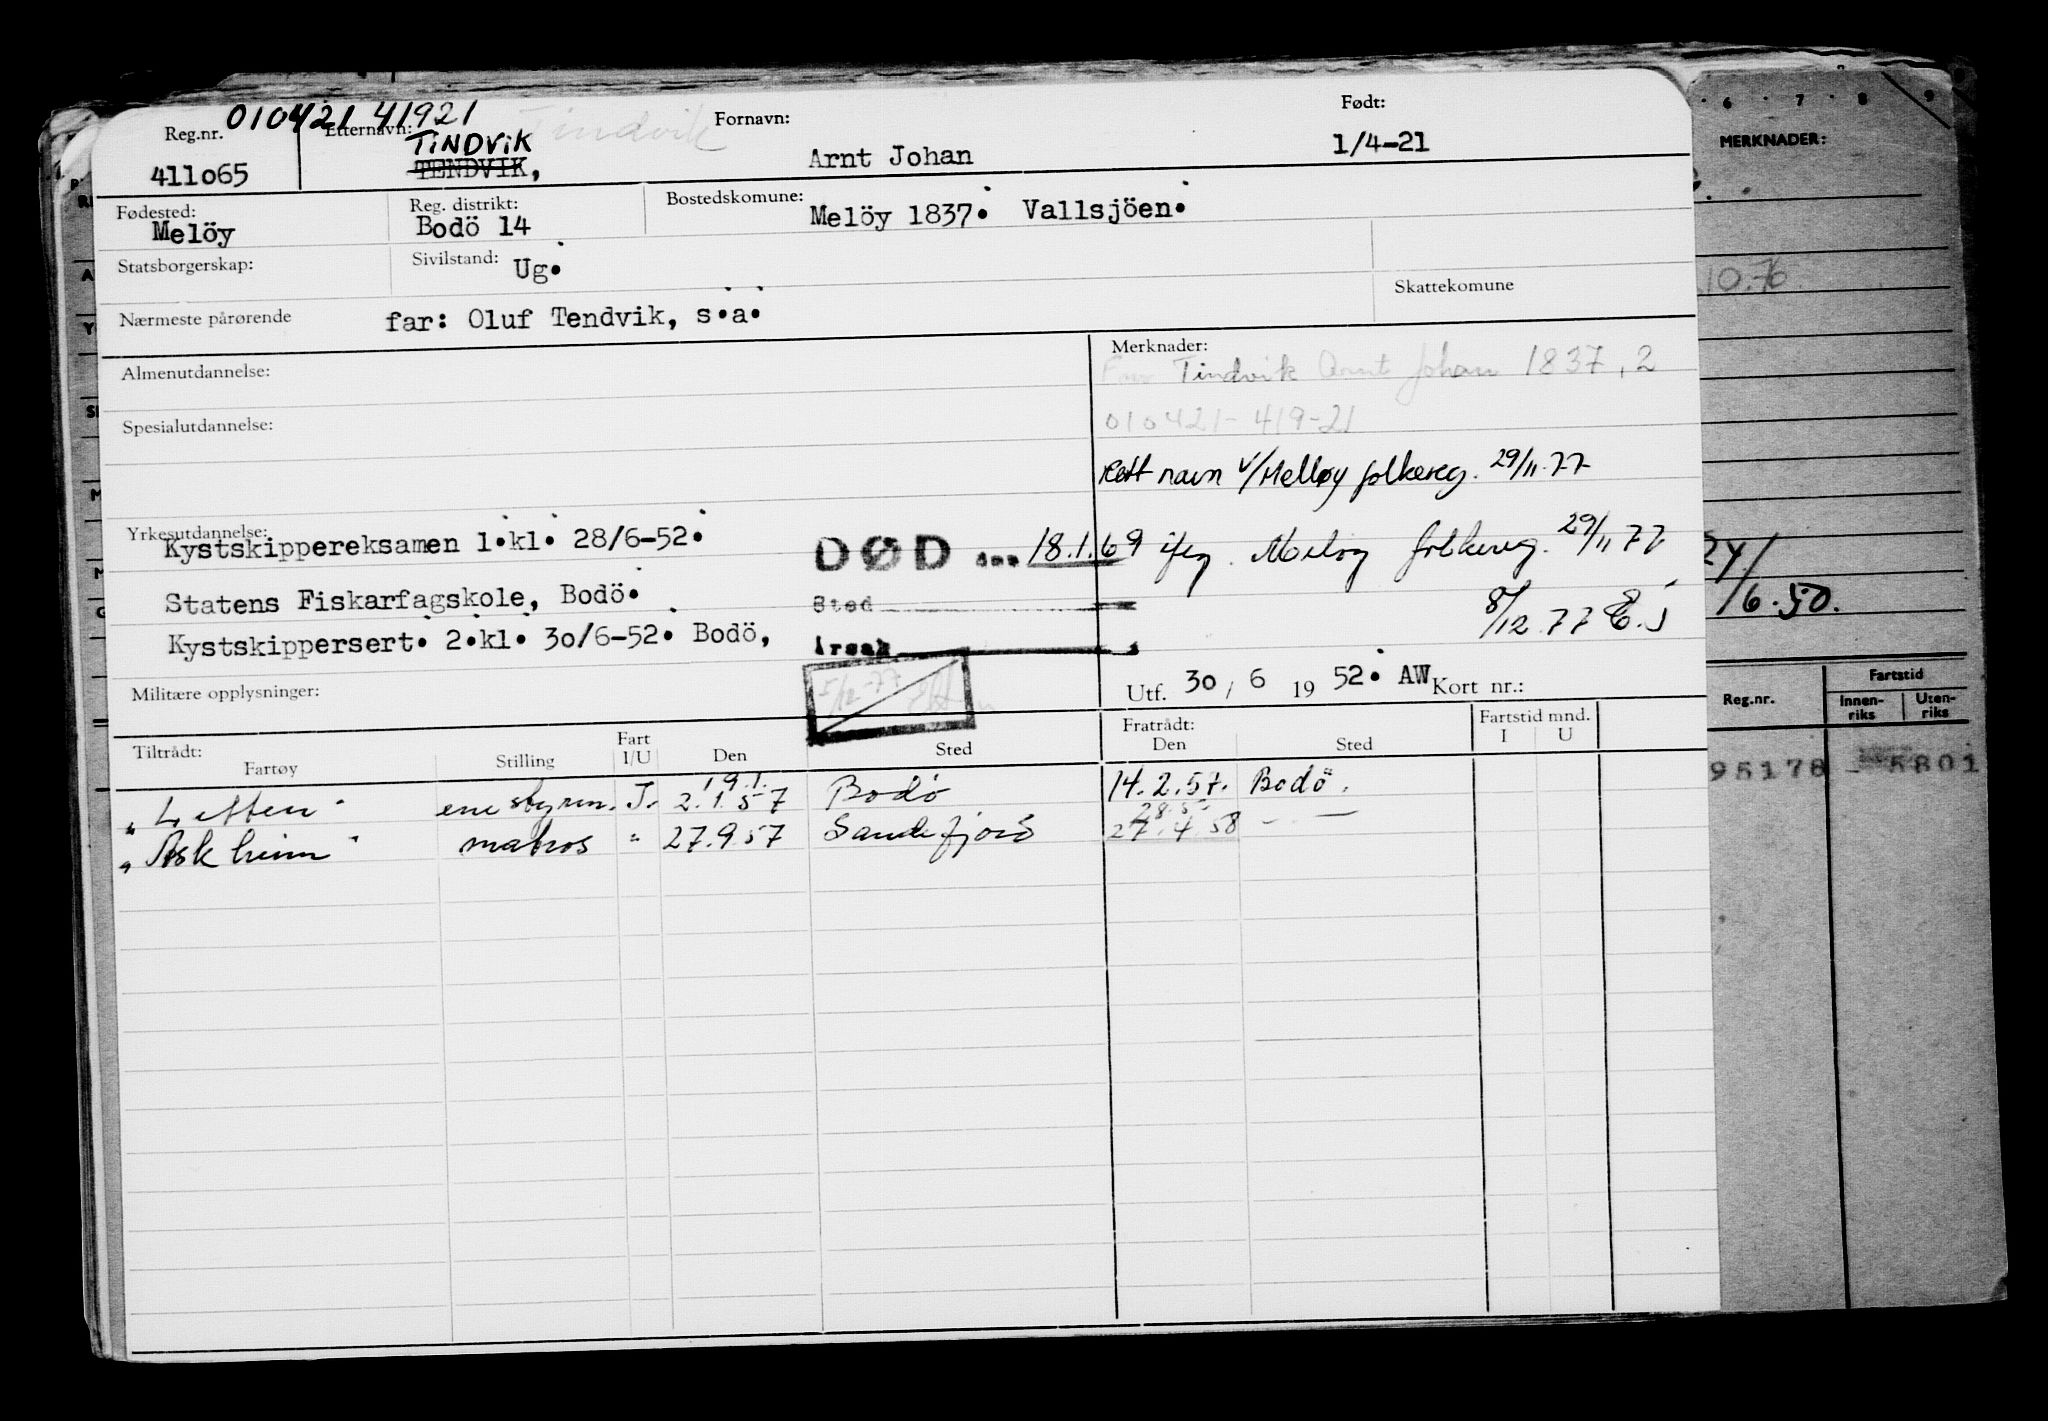 010421 41921
Reg.nr. Etternavn: Tindvik Fornavn: Født:
TINDVIK
411o65 TENDVIK, Arnt Johan 1/4-21
Fødested: Reg. distrikt: Bostedskomune:
Melöy Bodö 14 Melöy 1837. Vallsjöen.
Statsborgerskap: Sivilstand: Ug.
Skattekomune
Nærmeste pårørende far: Oluf Tendvik, s.a.
Almenutdannelse:
Merknader:
Tindvik Arnt Johan 1837, 2
010421-419-21
Spesialutdannelse:
Rett navn v/Melløy folkereg. 29/11-77
Yrkesutdannelse:
Kystskippereksamen 1.kl. 28/6-52.
DØD den 18.1.69 ifég. Meløy folkereg. 29/11 77
Statens Fiskarfagskole, Bodö.
Sted
8/12 77 E.J
Kystskippersert. 2.kl. 3o/6-52. Bodö,
Årsak
Militære opplysninger:
5/12-77
Utf. 3o / 6 19 52. AW Kort nr.:
Tiltrådt: Fratrådt: Fartstid mnd.
Fartøy Stilling Fart I/U Den Sted Den Sted I U
19.1.
ene styrm. I. 2.1.57 Bodö 14.2.57. Bodö.
28.5
"Askheim" matros " 27.9.57 Sandefjord 27.4.58 - " -
6 . 7 . 8 . 9
MERKNADER:
10.76.
24/
/6.50.
Reg.nr. Fartstid
Innen-riks Uten-riks
95178 - 5801